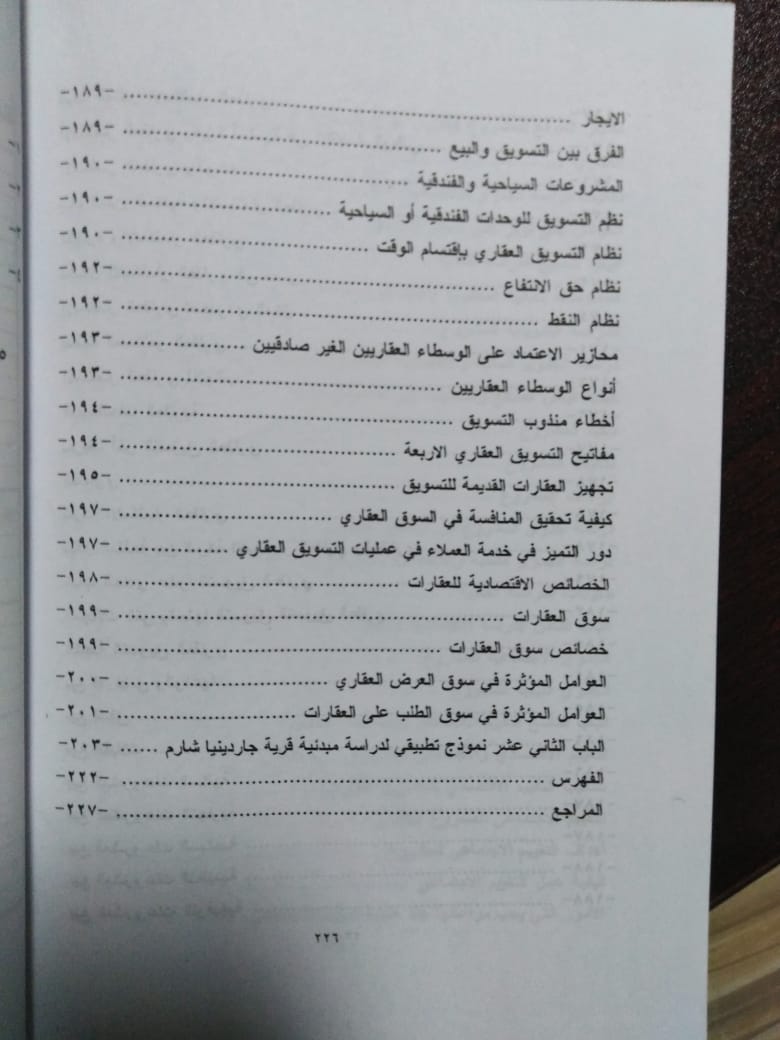 الايجار ........ -١٨٩-
الفرق بين التسويق والبيع ........ -١٨٩-
المشروعات السياحية والفندقية ........ -١٩٠-
نظم التسويق للوحدات الفندقية أو السياحية ........ -١٩٠-
نظام التسويق العقاري بإقتسام الوقت ........ -١٩٠-
نظام حق الانتفاع ........ -١٩٢-
نظام النقط ........ -١٩٢-
محازير الاعتماد على الوسطاء العقاريين الغير صادقيين ........ -١٩٣-
أنواع الوسطاء العقاريين ........ -١٩٣-
أخطاء منذوب التسويق ........ -١٩٤-
مفاتيح التسويق العقاري الاربعة ........ -١٩٤-
تجهيز العقارات القديمة للتسويق ........ -١٩٥-
كيفية تحقيق المنافسة في السوق العقاري ........ -١٩٧-
دور التميز في خدمة العملاء في عمليات التسويق العقاري ........ -١٩٧-
الخصائص الاقتصادية للعقارات ........ -١٩٨-
سوق العقارات ........ -١٩٩-
خصائص سوق العقارات ........ -١٩٩-
العوامل المؤثرة في سوق العرض العقاري ........ -٢٠٠-
العوامل المؤثرة في سوق الطلب على العقارات ........ -٢٠١-
الباب الثاني عشر نموذج تطبيقي لدراسة مبدئية قرية جاردينيا شارم ...... -٢٠٣-
الفهرس ........ -٢٢٢-
المراجع ........ -٢٢٧-
٢٢٦